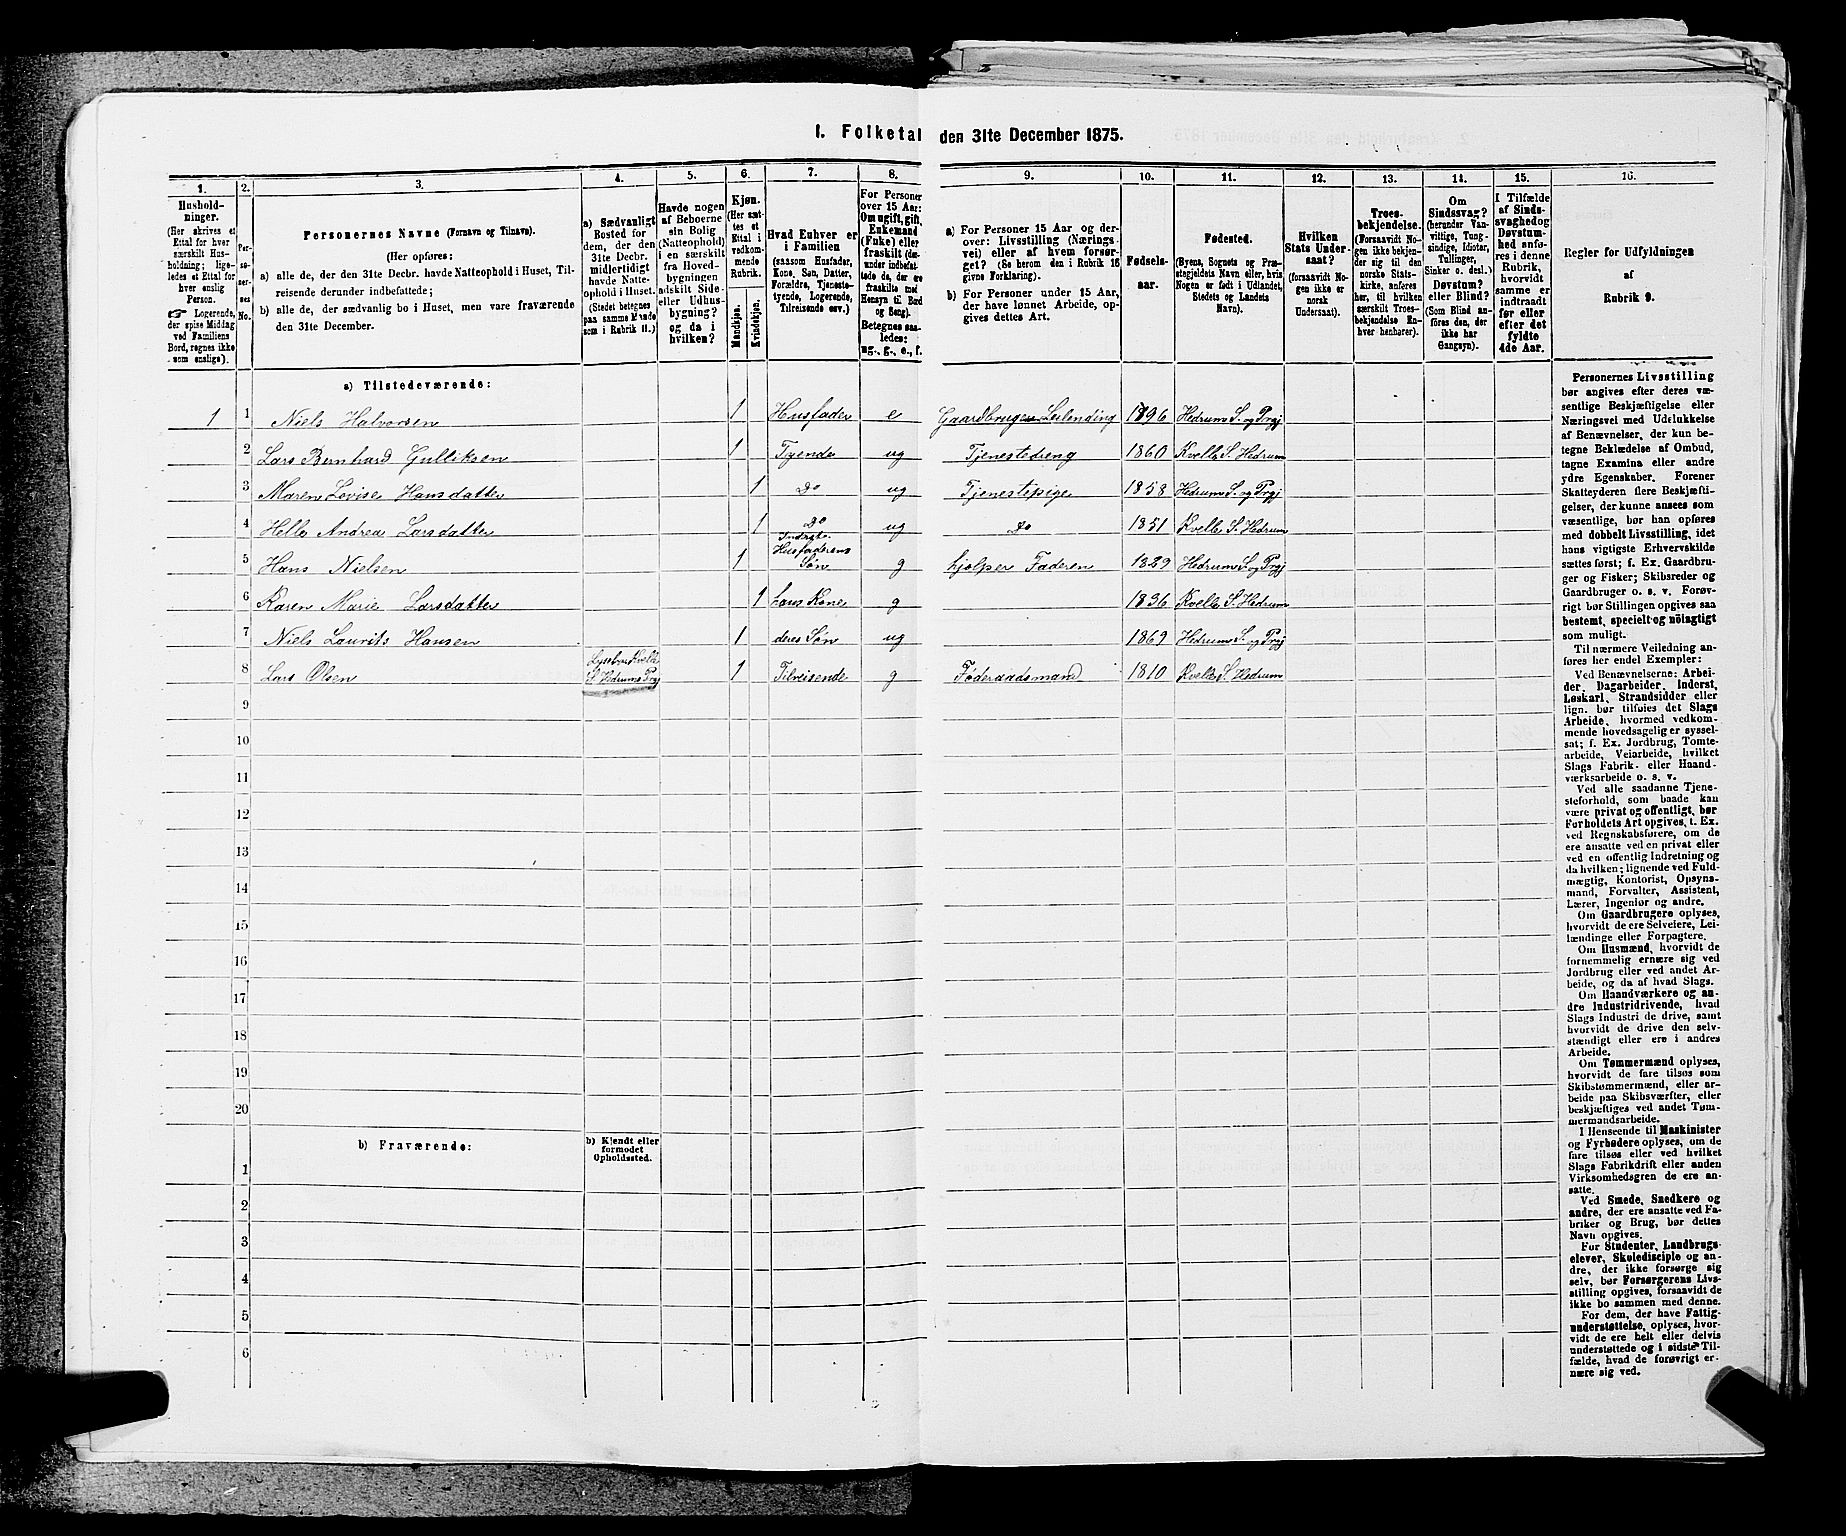 1. Folketal den 31te December 1875.
1. 2. 3. 4. 5. 6. 7. 8. 9. 10. 11. 12. 13. 14. 15. 16.
Hushold-
ninger.
(Her skrives et
Ettal for hver
særskilt Hus-
holdning; lige-
ledes et Ettal for
hver enslig
Person.
☞ Logerende,
der spise Middag
ved Familiens
Bord, regnes ikke
som enslige).
Per-
so-
ner-
nes
No.
Personernes Navne (Fornavn og Tilnavn).
(Her opføres:
a) alle de, der den 31te Decbr. havde Natteophold i Huset, Til-
reisende derunder indbefattede;
b) alle de, der sædvanlig bo i Huset, men vare fraværende
den 31te December.
a) Sædvanligt
Bosted for
dem, der den
31te Decbr.
midlertidigt
havde Natte-
ophold i Huset.
(Stedet betegnes
paa samme Maade
som i Rubrik 11.)
Havde nogen
af Beboerne
sin Bolig
(Natteophold)
i en særskilt
fra Hoved-
bygningen
adskilt Side-
eller Udhus-
bygning?
og da i
hvilken?
Kjøn.
(Her sæt-
tes et
Ettal i
vedkom-
mende
Rubrik.
Mandkjøn.
Kvindekjøn.
Hvad Enhver er
i Familien
(saasom Husfader,
Kone, Søn, Datter,
Forældre, Tjeneste-
tyende, Logerende,
Tilreisende osv.)
For Personer
over 15 Aar:
Om ugift, gift,
Enkemand
(Enke) eller
fraskilt (der-
under indbefat-
tede de, der ere
fraskilte med
Hensyn til Bord
og Seng).
Betegnes saa-
ledes:
ug., g., e., f.
a) For Personer 15 Aar og der-
over: Livsstilling (Nærings-
vei) eller af hvem forsør-
get? (Se herom den i Rubrik 16
givne Forklaring).
b) For Personer under 15 Aar,
der have lønnet Arbeide, op-
gives dettes Art.
Fødsels-
aar.
Fødested.
(Byens, Sognets og Præ-
stegjeldets Navn eller, hvis
Nogen er født i Udlandet,
Stedets og Landets
Navn).
Hvilken
Stats Under-
saat?
(forsaavidt No-
gen ikke er
norsk
Undersaat).
Troes-
bekjendelse.
(Forsaavidt No-
gen ikke bekjen-
der sig til den
norske Stats-
kirke, anføres
her, til hvilken
særskilt Troes-
bekjendelse En-
hver henhører).
Om
Sindssvag?
(herunder Van-
vittige, Tung-
sindige, Idioter,
Tullinger,
Sinker o. desl.)
Døvstum?
eller Blind?
(Som Blind an-
føres den, der
ikke har
Gangsyn).
I Tilfælde
af Sinds-
svaghed og
Døvstum-
hed anfø-
res i denne
Rubrik,
hvorvidt
samme er
indtraadt
før eller
efter det
fyldte
4de Aar.
Regler for Udfyldningen
af
Rubrik 9.
a) Tilstedeværende:
1 1 Niels Halvorsen 1 Husfader e Gaardbruger Leilending 1896 Hedrum S. og Prgj
2 Lars Bernhard Gulliksen 1 Tyende ug Tjenestedreng 1860 Kvelle S. Hedrum
3 Maren Lovise Hansdatter 1 Do ug Tjenestepige 1858 Hedrum S. og Prgj
4 Helle Andrea Larsdatter 1 Do ug Do 1851 Kvelle S. Hedrum
5 Hans Nielsen 1 Husfaderens
Søn g hjælper Faderen 1829 Hedrum S. og Prgj
6 Karen Marie Larsdatter 1 hans Kone g 1836 Kvelle S. Hedrum
7 Niels Laurits Hansen 1 deres Søn ug 1869 Hedrum S. og Prgj
8 Lars Olsen Kvelle
S. Hedrums Prgj 1 Tilreisende g Føderaadsmand 1810 Kvelle S. Hedrum
9
10
11
12
13
14
15
16
17
18
19
20
b) Fraværende:
b) Kjendt eller
formodet
Opholdssted.
1
2
3
4
5
6
Personernes Livsstilling
bør angives efter deres væ-
sentlige Beskjæftigelse eller
Næringsvei med Udelukkelse
af Benævnelser, der kun be-
tegne Beklædelse af Ombud,
tagne Examina eller andre
ydre Egenskaber. Forener
Skatteyderen flere Beskjæfti-
gelser, der kunne ansees som
væsentlige, bør han opføres
med dobbelt Livsstilling, idet
hans vigtigste Erhvervskilde
sættes først; f. Ex. Gaardbru-
ger og Fisker; Skibsreder og
Gaardbruger o. s. v. Forøv-
rigt bør Stillingen opgives saa
bestemt, specielt og nøiagtigt
som muligt.
Til nærmere Veiledning an-
føres her endel Exempler:
Ved Benævnelserne: Arbei-
der, Dagarbeider, Inderst,
Løskarl, Strandsidder eller
lign. bør tilføies det Slags
Arbeide, hvormed vedkom-
mende hovedsagelig er syssel-
sat; f. Ex. Jordbrug, Tomte-
arbeide, Veiarbeide, hvilket
Slags Fabrik- eller Haand-
værksarbeide o. s. v.
Ved alle saadanne Tjene-
steforhold, som baade kan
være privat og offentligt, bør
Forholdets Art opgives, t. Ex.
ved Regnskabsførere, om de
ere ansatte ved en privat eller
ved en offentlig Indretning og
da hvilken; lignende ved Fuld-
mægtig, Kontorist, Opsyns-
mand, Forvalter, Assistent,
Lærer, Ingeniør og andre.
Om Gaardbrugere oplyses,
hvorvidt de ere Selveiere, Lei-
lændinge eller Forpagtere.
Om Husmænd, hvorvidt de
fornemmelig ernære sig ved
Jordbrug eller ved andet Ar-
beide, og da af hvad Slags.
Om Haandværkere og an-
dre Industridrivende, hvad
Slags Industri de drive, samt
hvorvidt de drive den selv-
stændigt eller ere i andres
Arbeide.
Om Tømmermænd oplyses,
hvorvidt de fare tilsøs som
Skibstømmermænd, eller ar-
beide paa Skibsværfter, eller
beskjæftiges ved andet Tøm-
mermandsarbeide.
I Henseende til Maskinister
og Fyrbødere oplyses, om de
fare tilsøs eller ved hvilket
Slags Fabrikdrift eller anden
Virksomhedsgren de ere an-
satte.
Ved Smede, Snedkere og
andre, der ere ansatte ved Fa-
briker og Brug, bør dettes
Navn opgives.
For Studenter, Landbrugs-
elever, Skoledisciple og an-
dre, der ikke forsørge sig
selv, bør Forsørgerens Livs-
stilling opgives, forsaavidt de
ikke bo sammen med denne.
For dem, der have Fattig-
understøttelse, oplyses, hvor-
vidt de ere helt eller delvis
understøttede og i sidste Til-
fælde, hvad de forøvrigt er-
nære sig ved.